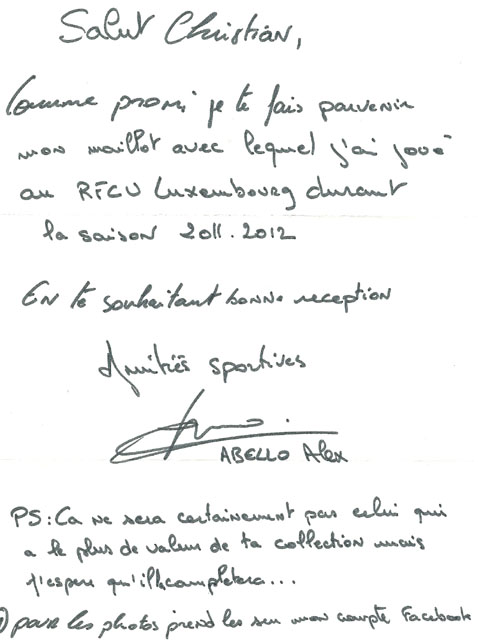 Salut Christian,
Comme promi je te fais parvenir
mon maillot avec lequel j'ai joué
au RFCU Luxembourg durant
la saison 2011.2012
En te souhaitant bonne reception
Amitiés sportives
ABELLO Alex
PS: Ca ne sera certainement pas celui qui
a le plus de valeur de ta collection mais
j'espere qu'il la completera...
pour les photos prend les sur mon compte Facebook